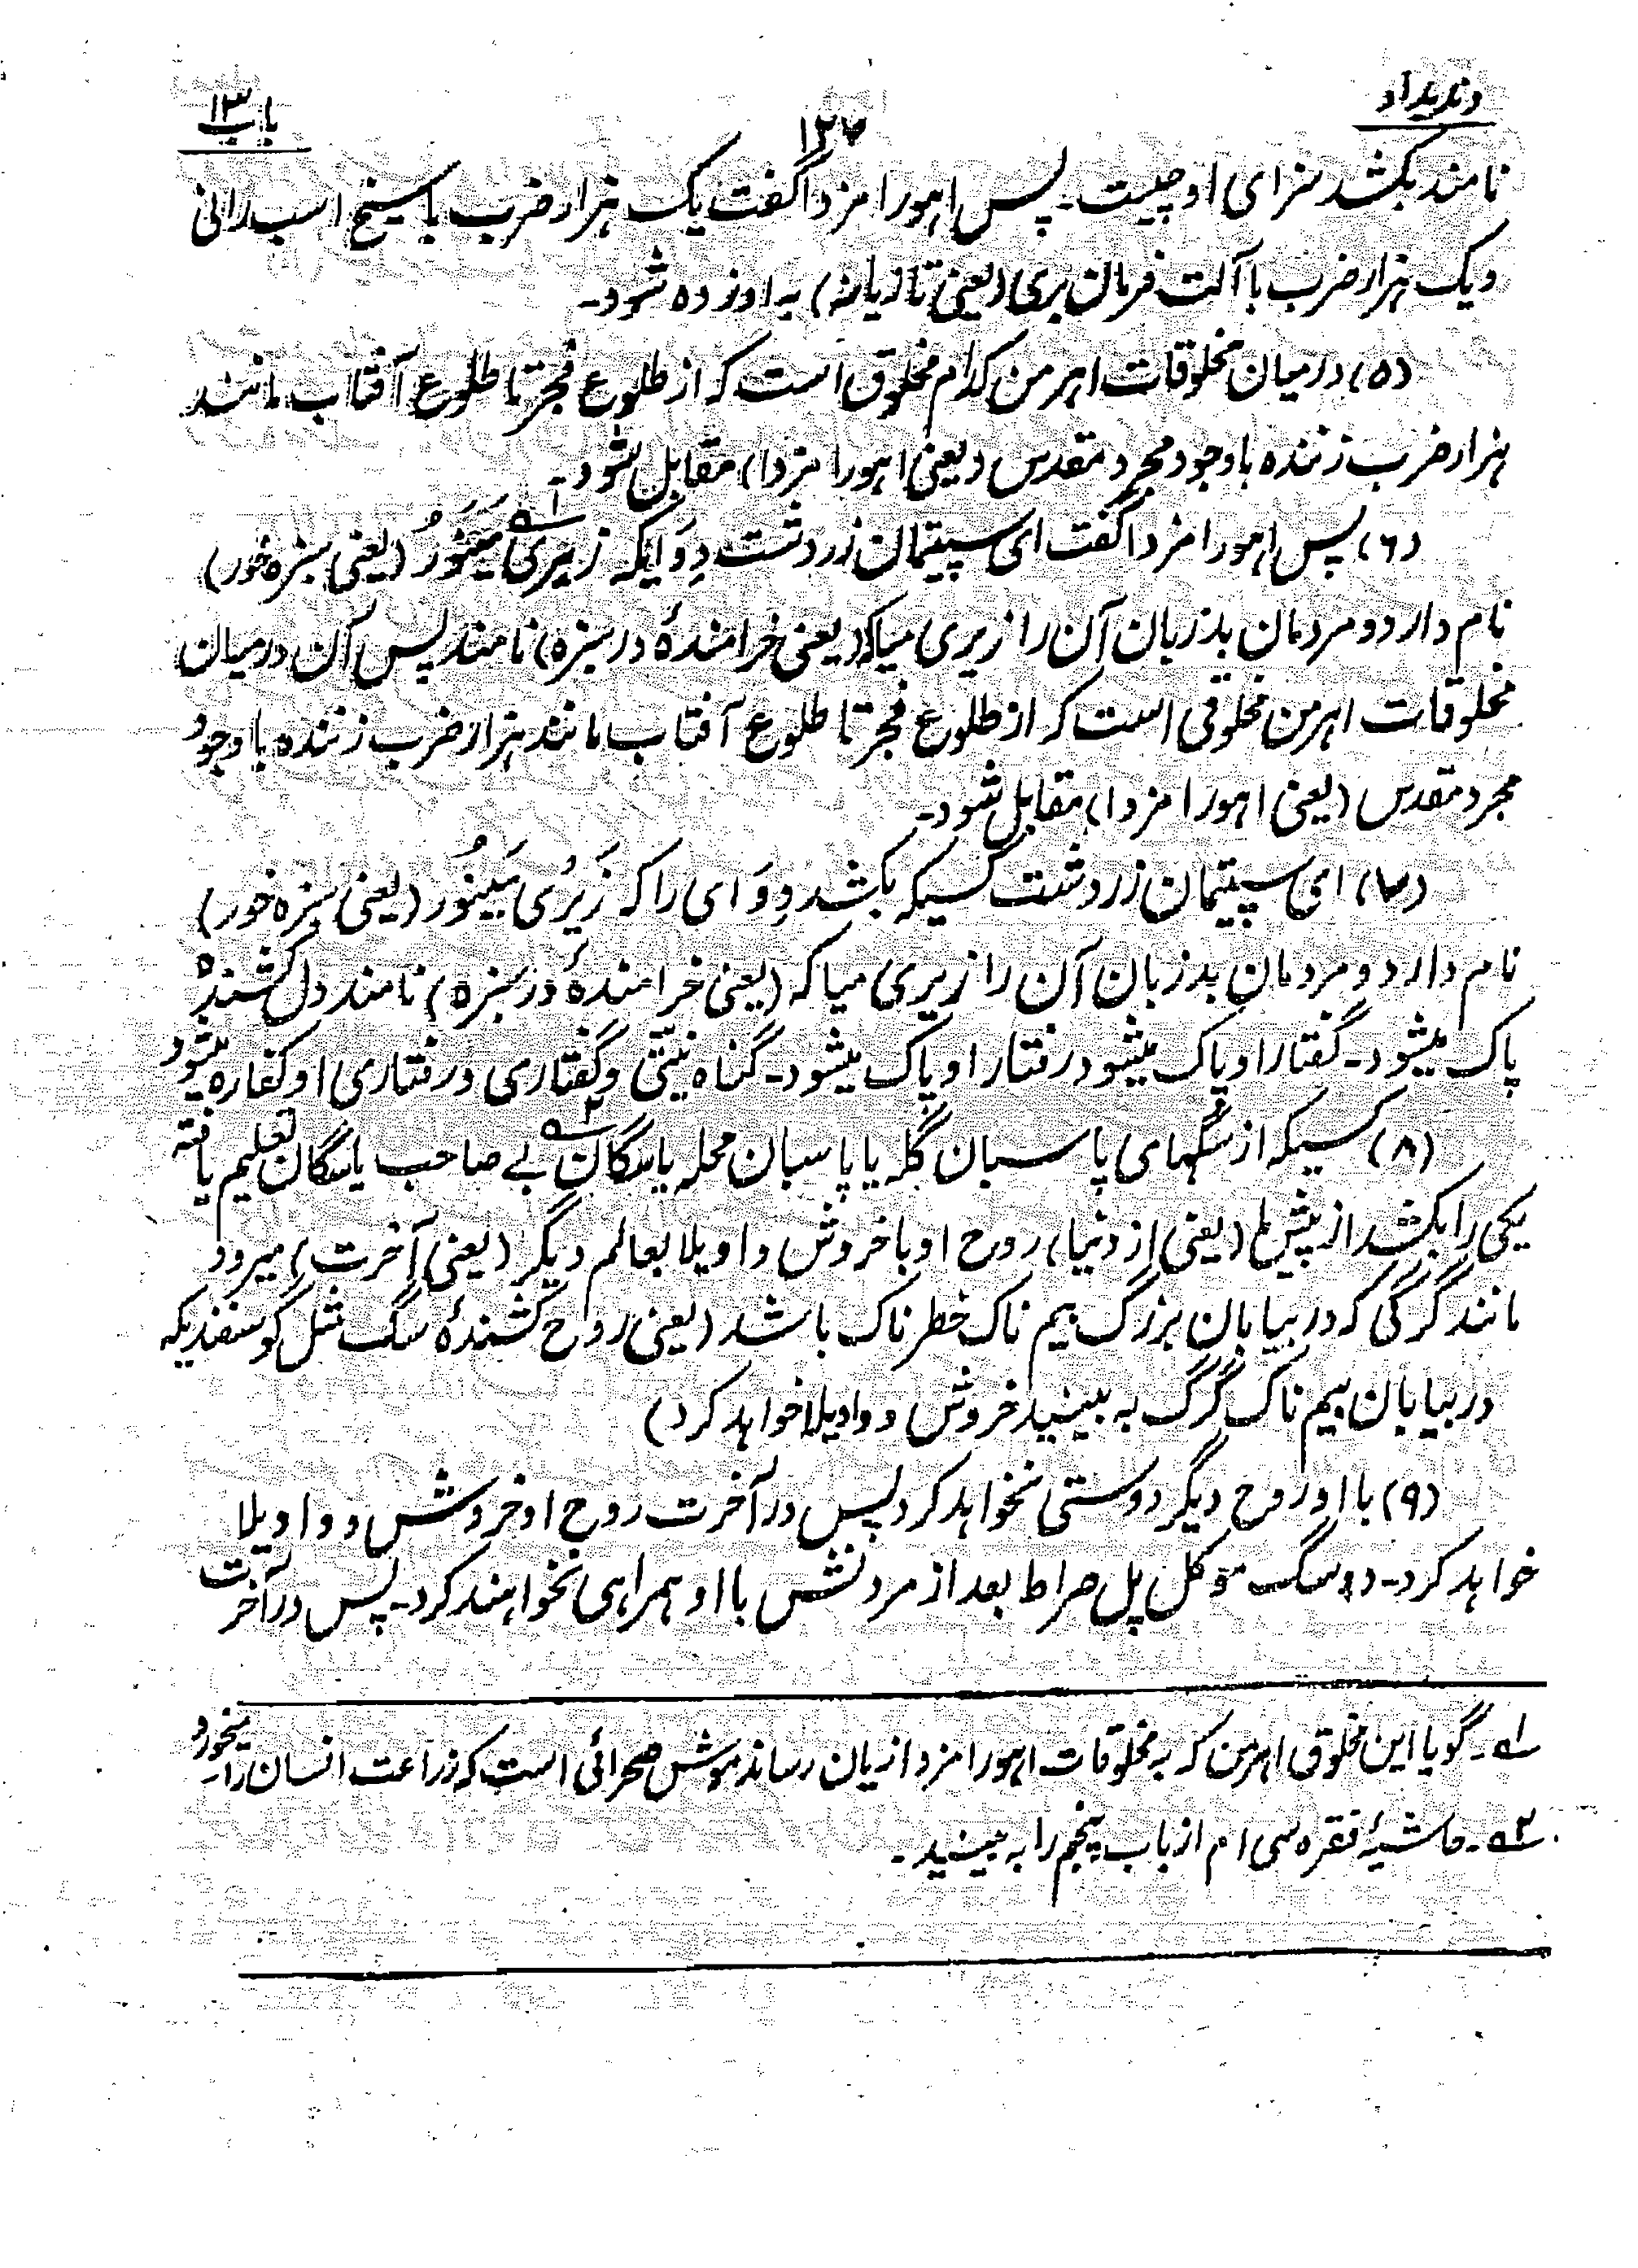 وندیداد
۱۲۷
باب ۱۳
نامند بکشد سزای او چیست۔ پس اهورا مزدا گفت یک هزار ضرب با سیخ اسب رانی
و یک هزار ضرب با آلت فرمان بری (یعنی تازیانه) به او زده شود۔
(۵) در میان مخلوقات اهرمن کدام مخلوق است که از طلوع فجر تا طلوع آفتاب مانند
هزار ضرب زننده با وجود مجرد مقدس (یعنی اهورا مزدا) مقابل شود۔
(۶) پس اهورا مزدا گفت ای سپیتمان زردشت دِوَ ایکه زیری مَیَنُورُ ۱ه (یعنی سبزه خور)
نام دارد و مردمان بد زبان آن را زیری میاکه (یعنی خرامندهٔ در سبزه) نامند پس آن درمیان
مخلوقات اهرمن مخلوقی است که از طلوع فجر تا طلوع آفتاب مانند هزار ضرب زننده با وجود
مجرد مقدس (یعنی اهورا مزدا) مقابل شود۔
(۷) ای سپیتمان زردشت کسیکه بکشد دِوَ ای را که زَیرُی مَیَینُور (یعنی سبزه خور)
نام دارد و مردمان بد زبان آن را زیری میاکه (یعنی خرامندهٔ در سبزه) نامند دل کشنده
پاک میشود۔ گفتار او پاک میشود رفتار او پاک میشود۔ گناه نیّتی و گفتاری و رفتاری او کفاره میشود
(۸) کسیکه از سگهای پاسبان گله یا پاسبان محله یا سگان ۲ه بے صاحب یا سگان تعلیم یافته
یکی را بکشد از پیش ما (یعنی از دنیا) روح او با خروش و اویلا بعالم دیگر (یعنی آخرت) میرود
مانند گرگی که در بیابان بزرگ بیم ناک خطرناک باشد (یعنی رواح کشندهٔ سگ مثل گوسفندیکه
در بیابان بیم ناک گرگ به بیند خروش و واویلا خواهد کرد)
(۹) با او روح دیگر دوستی نخواهد کرد پس در آخرت روح او خروش و واویلا
خواهد کرد۔ دو سگ موکل پل صراط بعد از مردنش با او همراهی نخواهند کرد۔ پس در آخرت
۱ه۔ گویا این مخلوق اهرمن که به مخلوقات اهورا مزدا زیان رساند موش صحرائی است که زراعت انسان را میخورد
۲ه۔ حاشیهٔ فقره سی ام از باب پنجم را به بینید۔